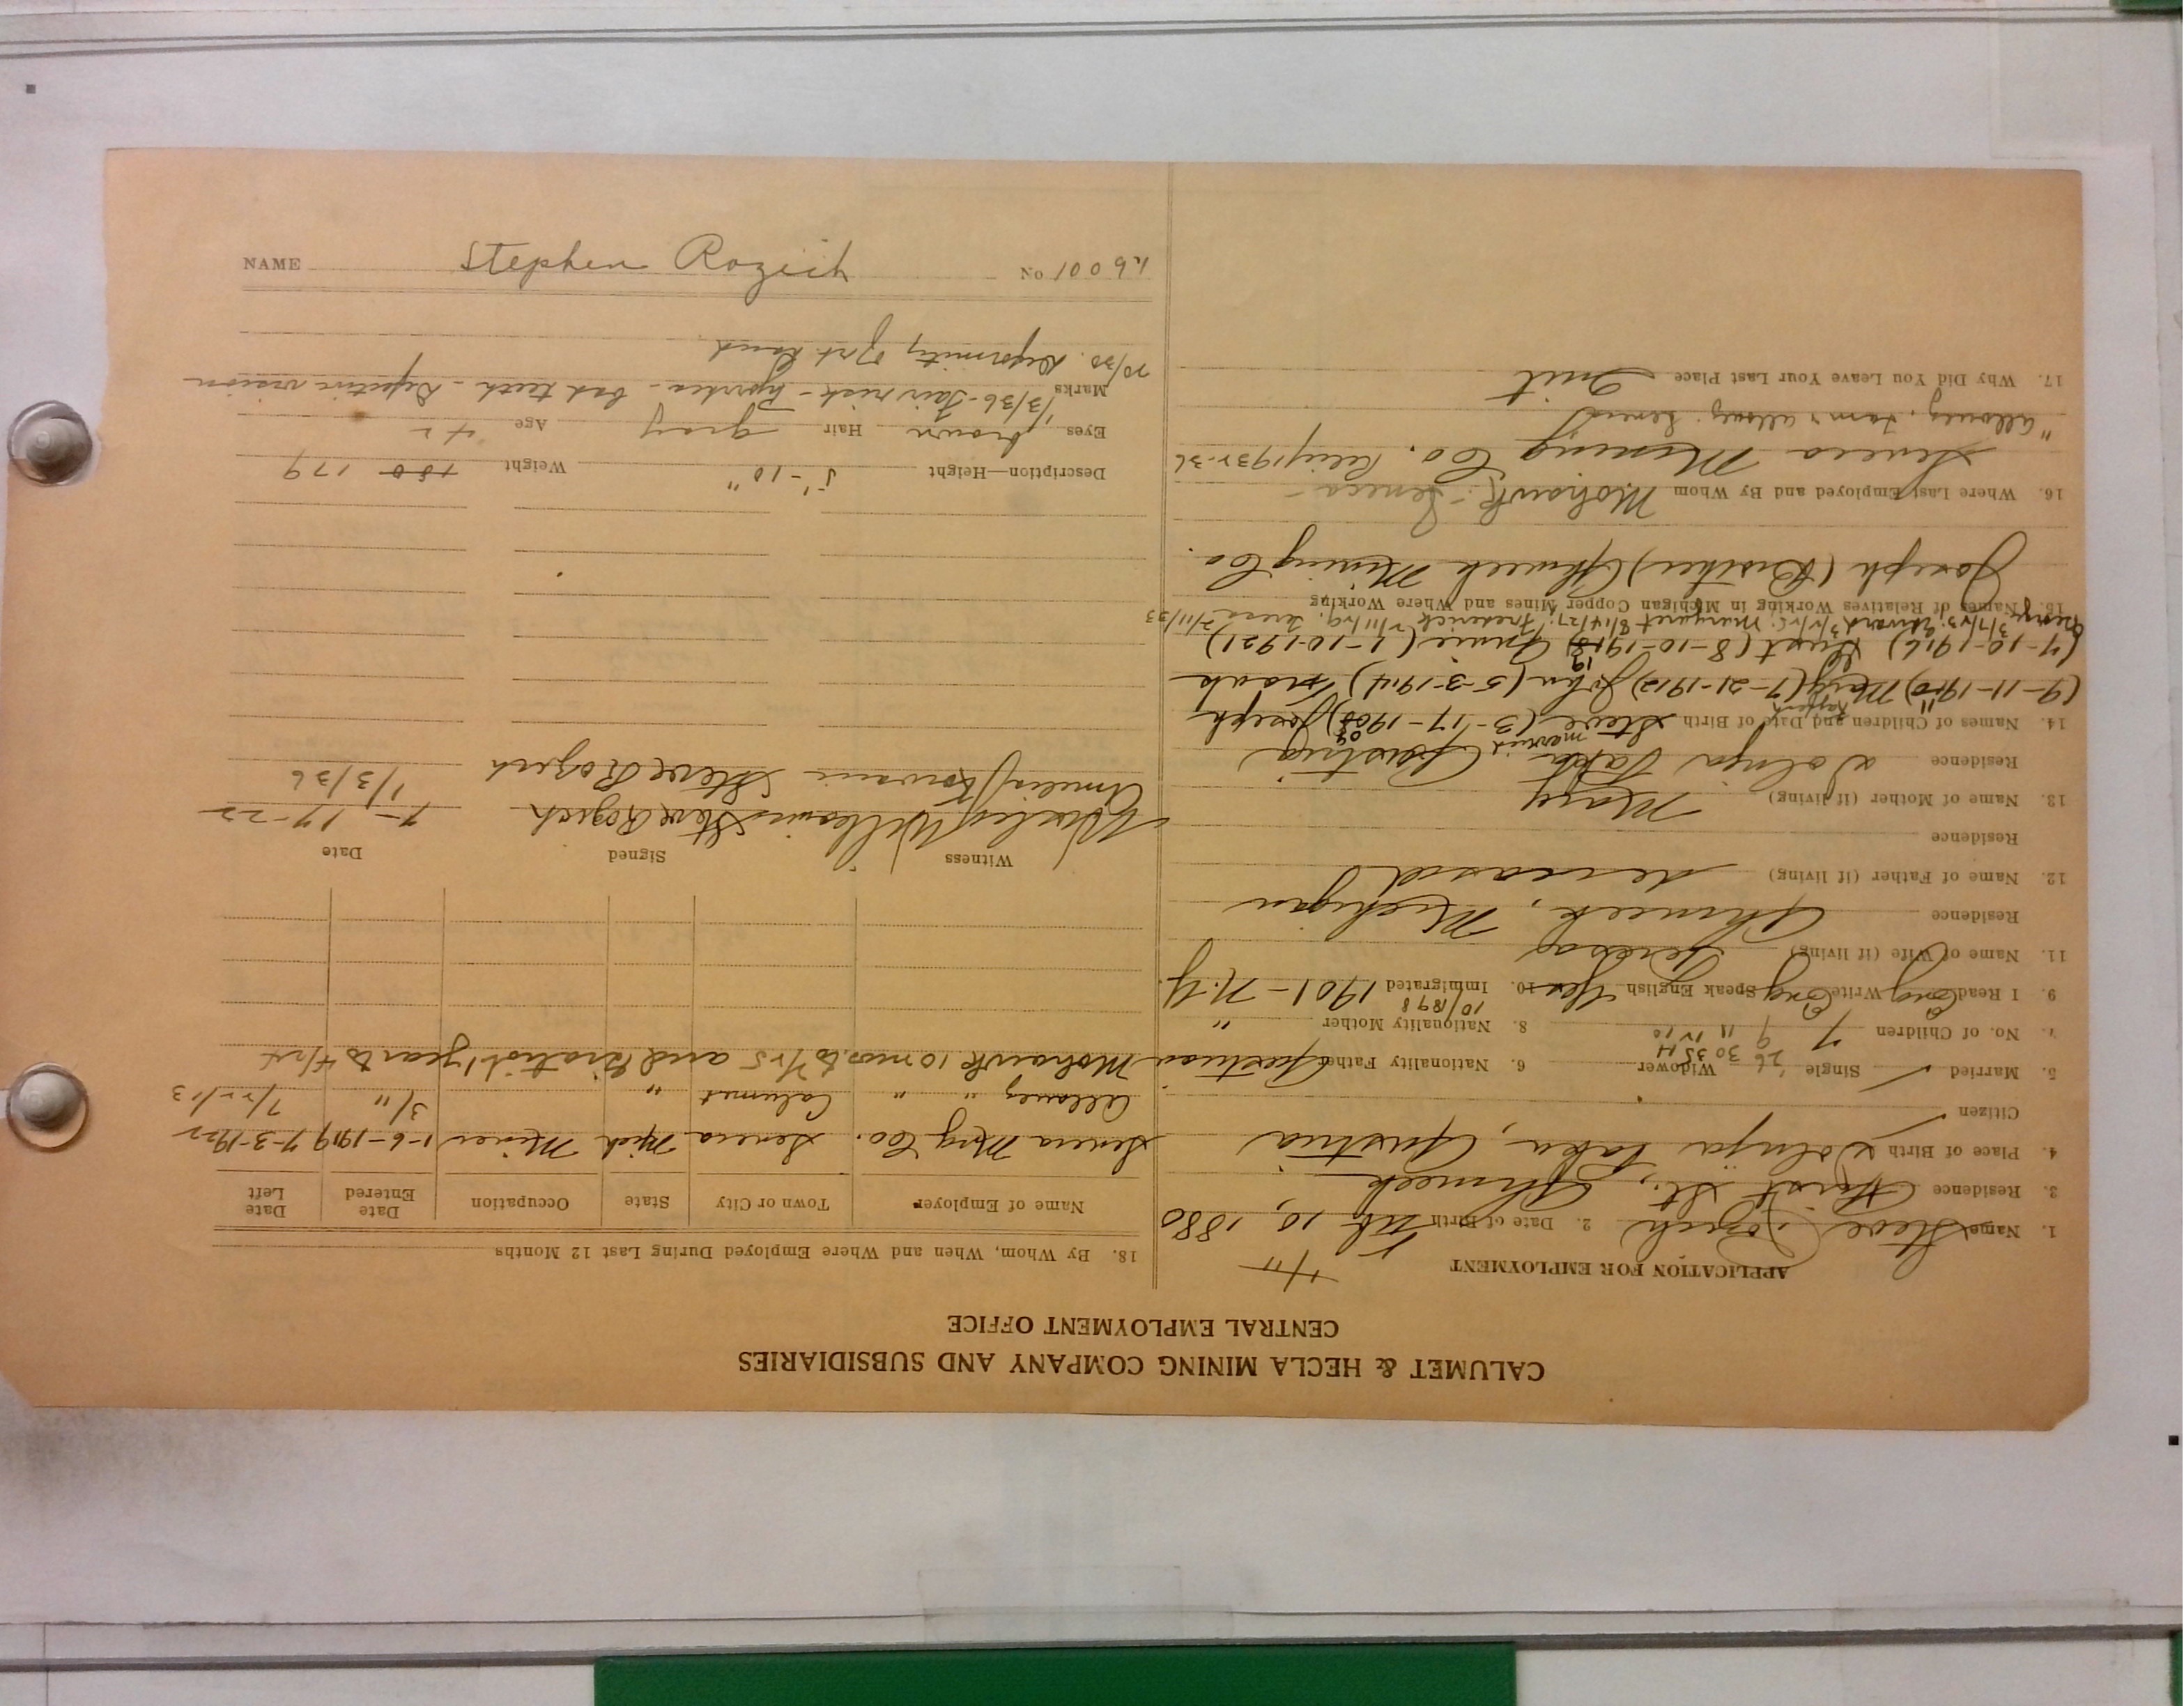 CALUMET & HECLA MINING COMPANY AND SUBSIDIARIES
CENTRAL EMPLOYMENT OFFICE
APPLICATION FOR EMPLOYMENT
1. Name Steve Rozich 2. Date of Birth Feb 10, 1880
3. Residence First St., Ahmeek
4. Place of Birth Dolnja Paka, Austria
Citizen
5. Married Single Widower 6. Nationality Father Austrian
26 30 35
7. No. of Children 7 9 11 8. Nationality Mother "
10/1898
9. I Read Eng Write Eng Speak English Yes 10. Immigrated 1901 - N.Y.
11. Name of Wife (if living) Teresa
Residence Ahmeek, Michigan
12. Name of Father (if living) deceased
Residence
13. Name of Mother (if living) Mary
Residence Dolnja Paka Austria
14. Names of Children and Date of Birth Steve (3-17-1908) Joseph
09
(9-11-1910) Mary (7-21-1912) John (5-3-1914) Frank
11
19
(7-10-1916) (8-10-1918) Annie (1-10-1921)
3/7/23; Edward 3/11/26; Margaret 8/14/27; Frederick 2/11/29, 2/11/33
15. Names of Relatives Working in Michigan Copper Mines and Where Working
Joseph (Brother) Ahmeek Mining Co.
16. Where Last Employed and By Whom Mohawk - Seneca -
Seneca Mining Co. Relief 1932-36
17. Why Did You Leave Your Last Place Quit
18. By Whom, When and Where Employed During Last 12 Months
Name of Employer Town or City State Occupation Date Entered Date Left
Seneca Mng Co. Seneca Mich Miner 1-6-1919 7-3-1922
Allouez " " Calumet " 3/11 7/22/13
Mohawk 10 mos. to 7/25 and 1 year to
Witness Signed Date
Williams Steve Rozich 7-17-22
Steve Rozich 1/3/36
Description—Height 5'-10" Weight 180 179
Eyes brown Hair gray Age 42
Marks 1/3/36 - Fair risk - - bad teeth - Defective vision
Deformity of rt hand.
NAME Stephen Rozich No